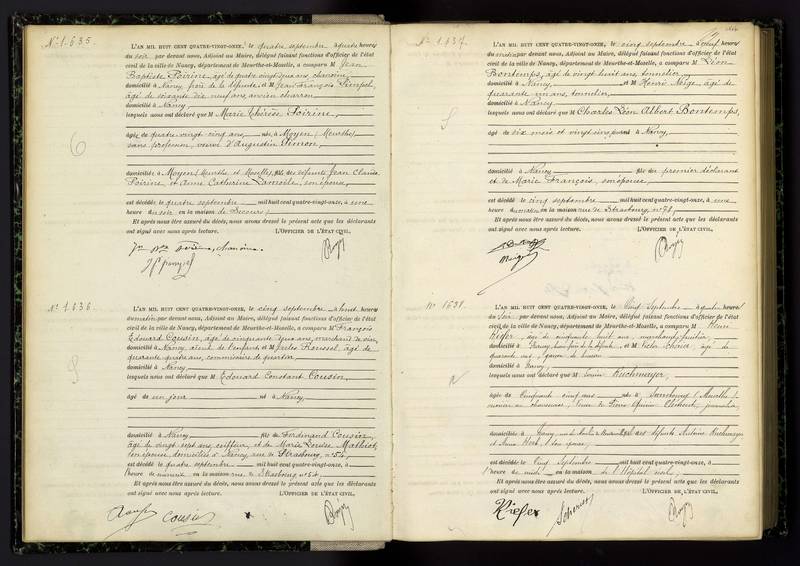 N° 1.635
L'AN MIL HUIT CENT QUATRE-VINGT-ONZE, le quatre septembre à quatre heures
du soir par devant nous, Adjoint au Maire, délégué faisant fonctions d'officier de l'état
civil de la ville de Nancy, département de Meurthe-et-Moselle, a comparu M Jean
Baptiste Poirine, âgé de quatre vingt ans, chanoine,
domicilié à Nancy, frère de la défunte et M Jean François Pimpel,
âgé de soixante dix neuf ans, ancien charron
domicilié à Nancy
lesquels nous ont déclaré que M Marie Thérèse Poirine,
âgée de quatre vingt cinq ans née à Moyen (Meurthe)
sans profession, veuve d'Augustin Simon
domiciliée à Moyen (Meurthe et Moselle), fille des défunts Jean Claude
Poirine, et Anne Catherine son épouse
est décédée le quatre septembre mil huit cent quatre-vingt-onze, à une
heure du soir en la maison de Secours;
Et après nous être assuré du décès, nous avons dressé le présent acte que les déclarants
ont signé avec nous après lecture. L'OFFICIER DE L'ÉTAT CIVIL,
6
N° 1636
L'AN MIL HUIT CENT QUATRE-VINGT-ONZE, le cinq septembre à huit heures
du matin par devant nous, Adjoint au Maire, délégué faisant fonctions d'officier de l'état
civil de la ville de Nancy, département de Meurthe-et-Moselle, a comparu M François
Edouard Cousin, âgé de cinquante ans, marchand de vin
domicilié à Nancy, aïeul de l'enfant et M Jules Roussel, âgé de
quarante ans, commissaire de quartier
domicilié à Nancy
lesquels nous ont déclaré que M Edouard Constant Cousin,
âgé de un jour né à Nancy,
domicilié à Nancy fils de Ferdinand Cousin,
âgé de vingt sept ans, coiffeur, et de Marie Louise
son épouse domiciliés à Nancy, rue de Strasbourg, n° 54,
est décédé le quatre septembre mil huit cent quatre-vingt-onze, à
heure de en la maison rue de Strasbourg n° 54
Et après nous être assuré du décès, nous avons dressé le présent acte que les déclarants
ont signé avec nous après lecture. L'OFFICIER DE L'ÉTAT CIVIL,
Cousin
N° 1637
L'AN MIL HUIT CENT QUATRE-VINGT-ONZE, le cinq septembre à neuf heures
du matin par devant nous, Adjoint au Maire, délégué faisant fonctions d'officier de l'état
civil de la ville de Nancy, département de Meurthe-et-Moselle, a comparu M Léon
Bontemps, âgé de vingt huit ans, tonnelier
domicilié à Nancy et M Henri âgé de
quarante un ans, tonnelier
domicilié à Nancy
lesquels nous ont déclaré que M Charles Léon Albert Bontemps,
âgé de six mois et vingt cinq jours né à Nancy,
domicilié à Nancy fils du premier déclarant
et de Marie François, son épouse,
est décédé le cinq septembre mil huit cent quatre-vingt-onze, à une
heure du matin en la maison rue de Strasbourg, n° 78,
Et après nous être assuré du décès, nous avons dressé le présent acte que les déclarants
ont signé avec nous après lecture. L'OFFICIER DE L'ÉTAT CIVIL,
N° 1638.
L'AN MIL HUIT CENT QUATRE-VINGT-ONZE, le Cinq Septembre à quatre heures
du Soir par devant nous, Adjoint au Maire, délégué faisant fonctions d'officier de l'état
civil de la ville de Nancy, département de Meurthe-et-Moselle, a comparu M Henri
Kiefer, âgé de cinquante huit ans, marchand fruitier,
domicilié à Nancy, de la défunte, et M Victor âgé de
quarante ans,
domicilié à Nancy;
lesquels nous ont déclaré que M Louise Kuchmayer,
âgée de Cinquante cinq ans née à Sarrebourg (Meurthe)
domiciliée à Nancy défunts Antoine Kuchmayer
et son épouse;
est décédée le Cinq Septembre mil huit cent quatre-vingt-onze, à
heure de midi en la maison de l'Hôpital civil;
Et après nous être assuré du décès, nous avons dressé le présent acte que les déclarants
ont signé avec nous après lecture. L'OFFICIER DE L'ÉTAT CIVIL,
Kiefer